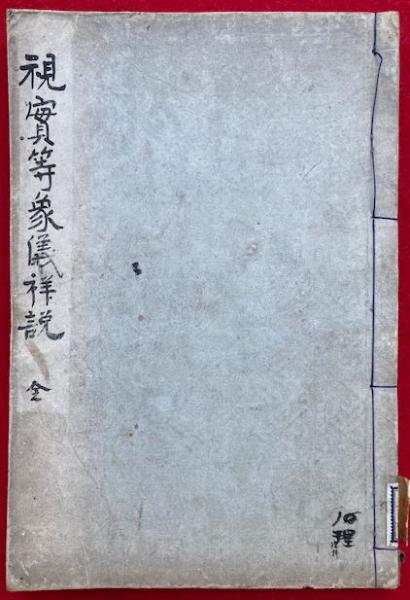 視實等象儀祥説 全
理